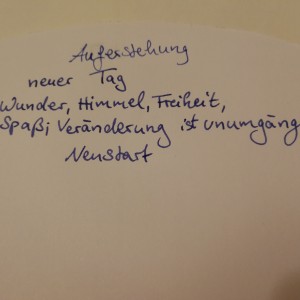 Auferstehung
neuer Tag
Wunder, Himmel, Freiheit,
Spaß; Veränderung ist unumgäng
Neustart